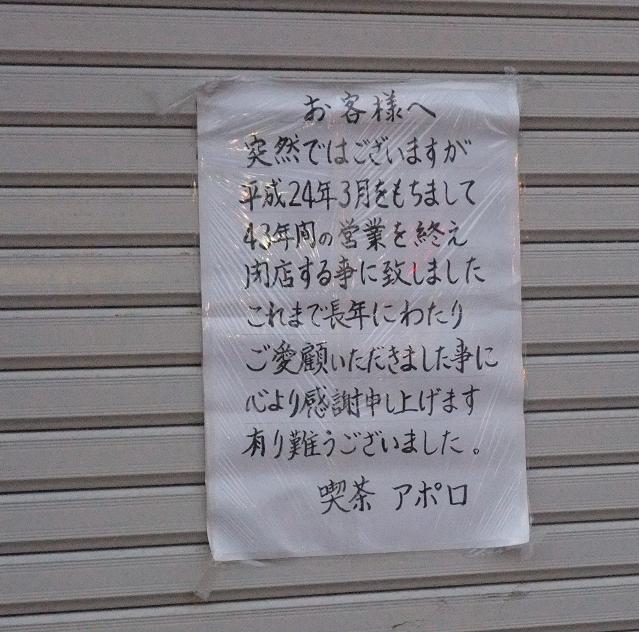 お客様へ
突然ではございますが
平成24年3月をもちまして
43年間の営業を終え
閉店する事に致しました
これまで長年にわたり
ご愛顧いただきました事に
心より感謝申し上げます
有り難うございました。
喫茶 アポロ